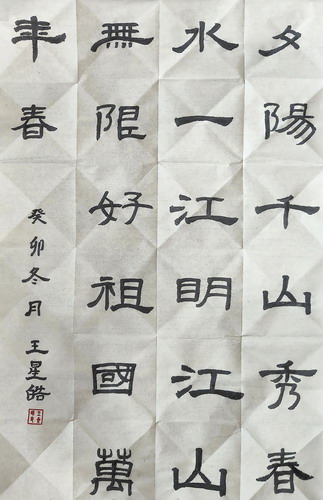 夕陽千山秀春
水一江明江山
無限好祖國萬
年春
癸卯冬月王星皓